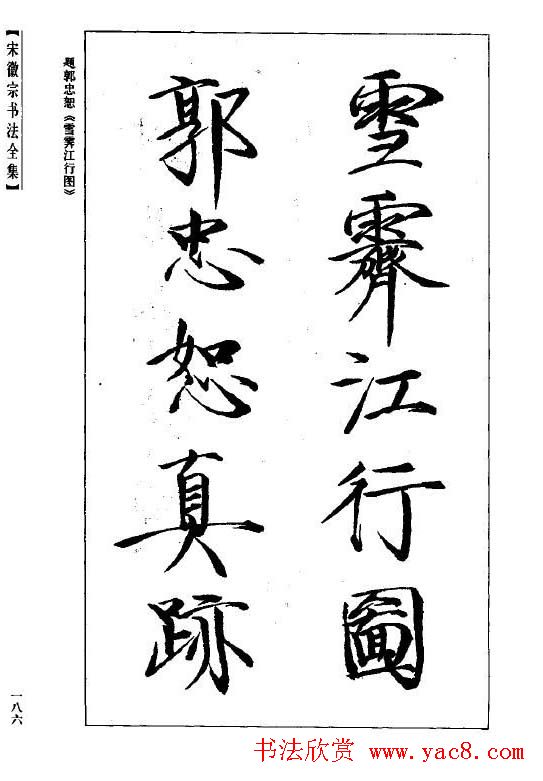 雪霽江行圖
郭忠恕真跡
题郭忠恕《雪霁江行图》
【宋徽宗书法全集】
一八六
书法欣赏 www.yac8.com